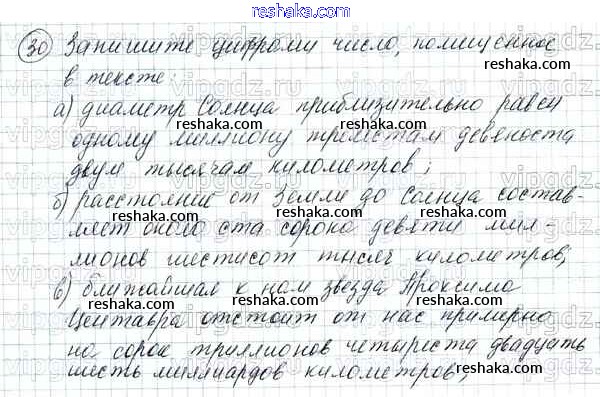 reshaka.com
30 Запишите цифрами число, помещённое
в тексте:
а) диаметр Солнца приблизительно равен
одному миллиону трёмстам девяноста
двум тысячам километров;
б) расстояние от Земли до Солнца состав-
ляет около ста сорока девяти мил-
лионов шестисот тысяч километров;
в) ближайшая к нам звезда Проксима
Центавра отстоит от нас примерно
на сорок триллионов четыреста двадцать
шесть миллиардов километров;